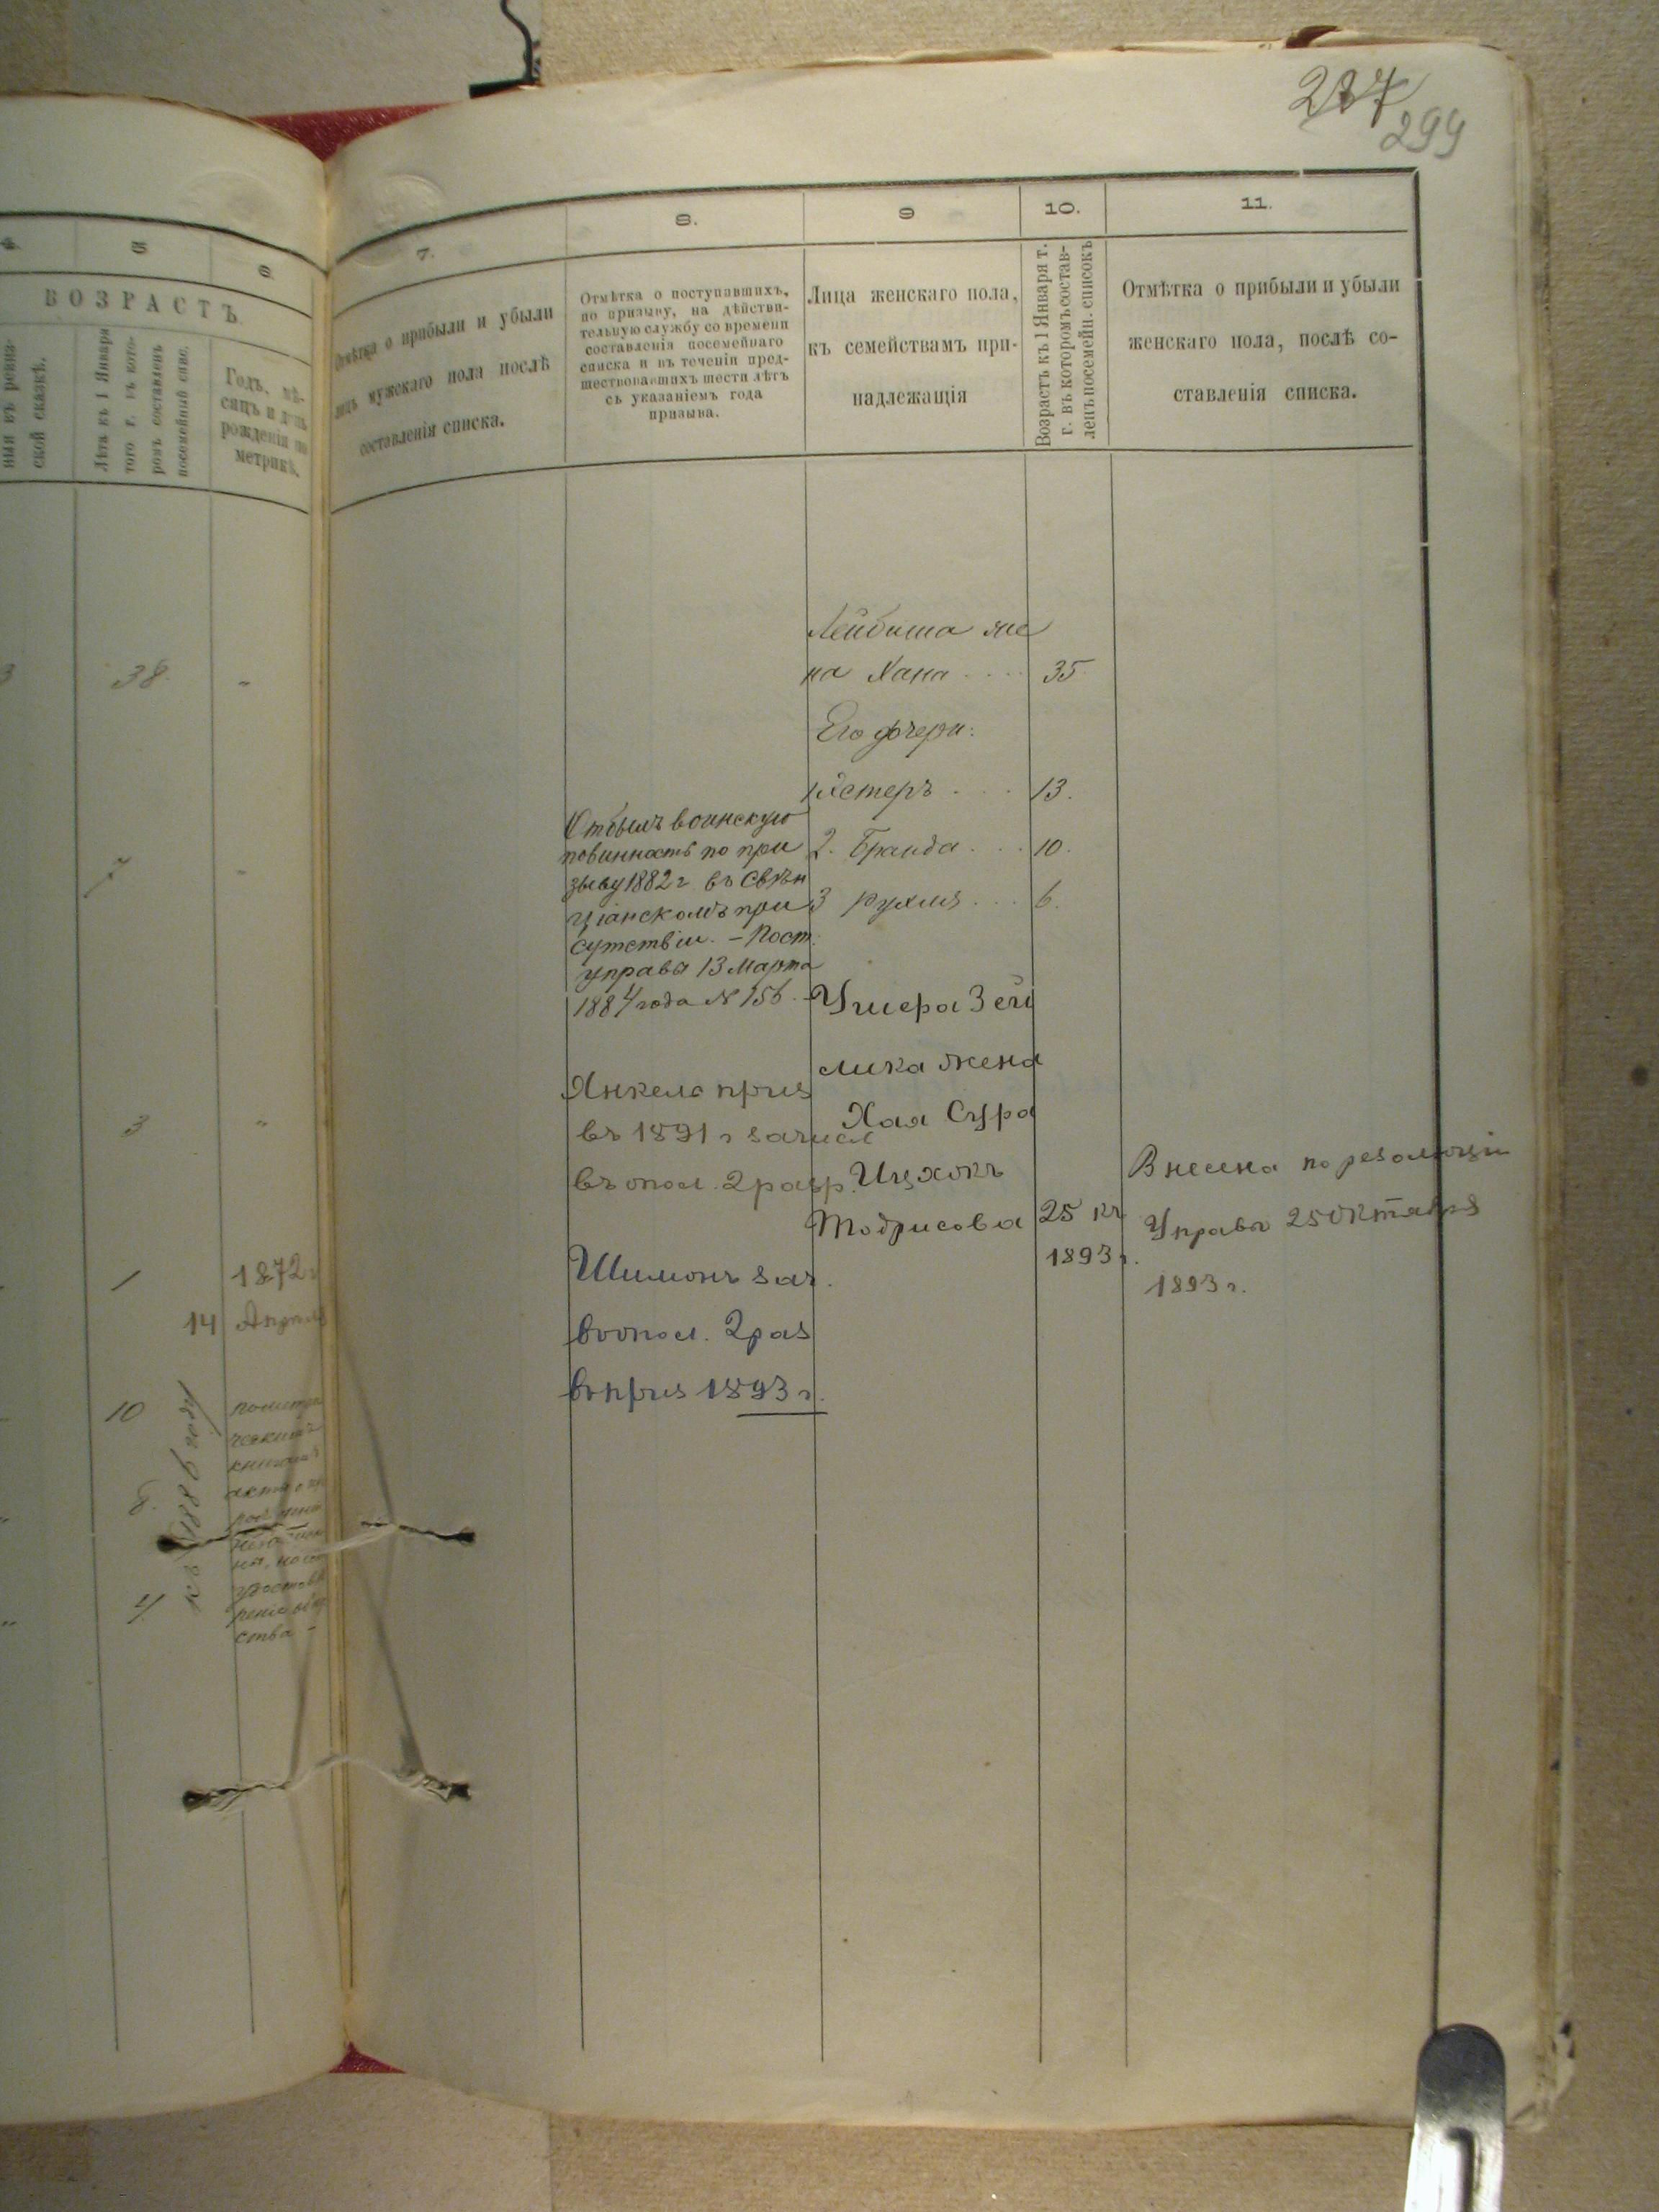 237
299
4.
5
6.
ВОЗРАСТЪ
ской сказкѣ.
Лѣта къ 1 Января
того г. въ кото-
ромъ составленъ
посемейный спис.
Годъ, мѣ-
сяцъ и день
рожденія по
метрикѣ.
38.
7
3
1
1872 г
14 Апрѣля
10
8.
4.
къ 1886 году
7.
8.
9
10.
11.
Отмѣтка о прибыли и убыли
лицъ мужскаго пола послѣ
составленія списка.
Отмѣтка о поступавшихъ,
по призыву, на дѣйстви-
тельную службу со времени
составленія посемейнаго
списка и въ теченіи пред-
шествовавшихъ шести лѣтъ
съ указаніемъ года
призыва.
Лица женскаго пола,
къ семействамъ при-
надлежащія
Возрастъ къ 1 Января т.
г. въ которомъ состав-
ленъ посемейн. списокъ
Отмѣтка о прибыли и убыли
женскаго пола, послѣ со-
ставленія списка.
Отбылъ воинскую
повинность по при
зыву 1882 г въ Свѣн
цянскомъ при
сутствіи. – Пост.
управы 13 Марта
1884 года № 156.
Янкель приз
въ 1891 г зачисл
въ опол. 2 разр.
Шимонъ зач.
въ опол. 2 раз
въ приз 1893 г.
Лейбиша же
на Хана . . . . 35
Его дочери:
1 Эстеръ . . . 13.
2. Брайда . . . 10.
3 Рухля . . . 6.
Умера Зей
лика жена
Хая Сура
Ицхокъ
Тодрисова
25 къ
1893 г.
Внесена по резолюціи
Управы 25 Октября
1893 г.